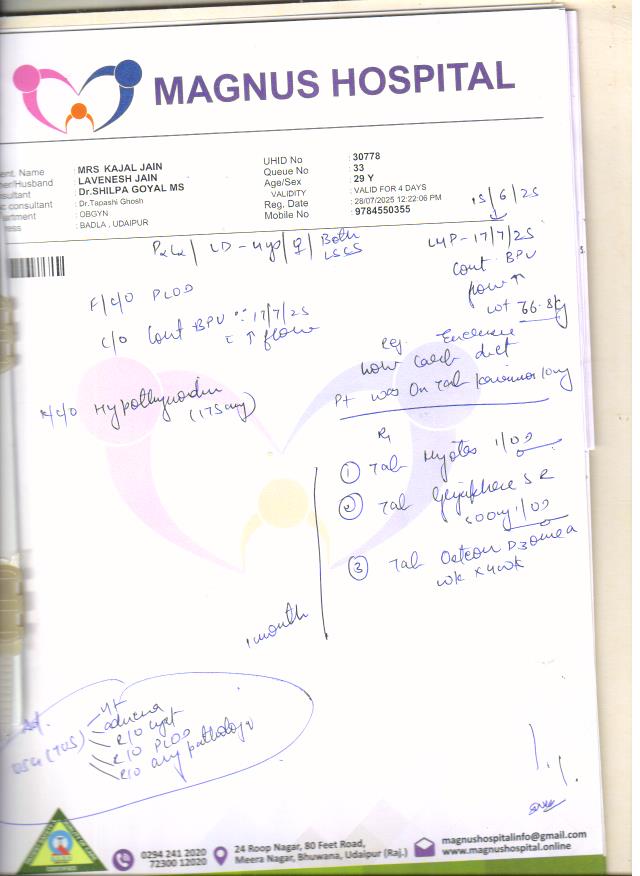 MAGNUS HOSPITAL
ent. Name : MRS KAJAL JAIN
her/Husband : LAVENESH JAIN
sultant : Dr.SHILPA GOYAL MS
c consultant : Dr.Tapashi Ghosh
artment : OBGYN
ress : BADLA , UDAIPUR
UHID No : 30778
Queue No : 33
Age/Sex : 29 Y
VALIDITY : VALID FOR 4 DAYS
Reg. Date : 28/07/2025 12:22:06 PM
Mobile No : 9784550355
15/6/25
P2L2 / LD - 4yr / ♀ / Both LSCS
LMP - 17/7/25
Cont. BPV
flow ↑
wt 66.8kg
F/C/O PCOD
C/O Cont BPV 17/7/25
c ↑ flow
K/C/O Hypothyroidism
(175mcg)
Reg. Exercise
low Carb diet
Pt was On Tab
Rx
① Tab 1/OD
② Tab SR
500mg 1/OD
③ Tab D3 once a
wk x 4wk
1 month
Adv.
USG (TVS)
R/O cyst
R/O PCOD
R/O any pathology
0294 241 2020
72300 12020
24 Roop Nagar, 80 Feet Road,
Meera Nagar, Bhuwana, Udaipur (Raj.)
magnushospitalinfo@gmail.com
www.magnushospital.online